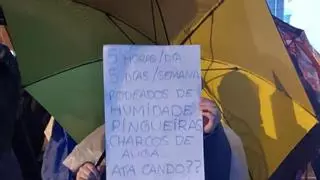 5 HORAS/DÍA
5 DÍAS/SEMANA
RODEADOS DE
HUMIDADE
PINGUEIRAS
CHARCOS DE
AUGA.
ATA CANDO??